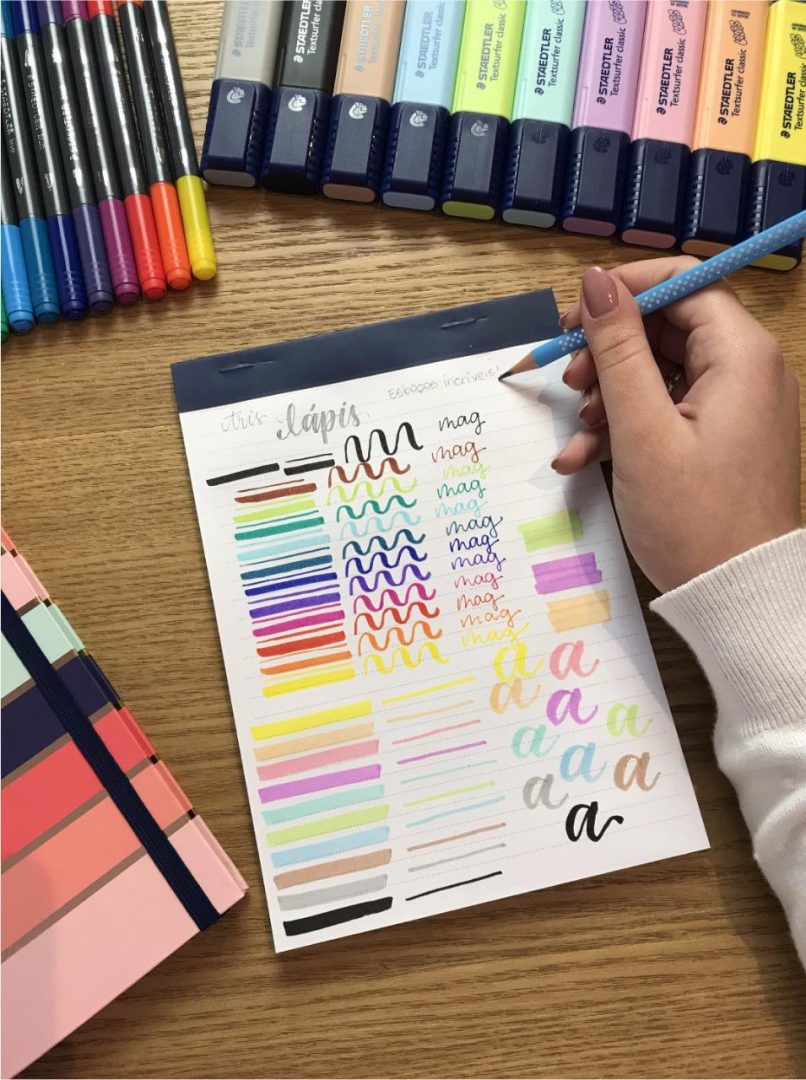 STAEDTLER
Textsurfer classic
STAEDTLER
Textsurfer classic
STAEDTLER
Textsurfer classic
STAEDTLER
Textsurfer classic
STAEDTLER
Textsurfer classic
STAEDTLER
Textsurfer classic
STAEDTLER
Textsurfer classic
STAEDTLER
Textsurfer classic
STAEDTLER
Textsurfer classic
STAEDTLER
Textsurfer classic
Esboços incríveis!
tris lápis
mag
mag
mag
mag
mag
mag
mag
mag
mag
mag
mag
mag
a a
a a
a a
a a
a
a